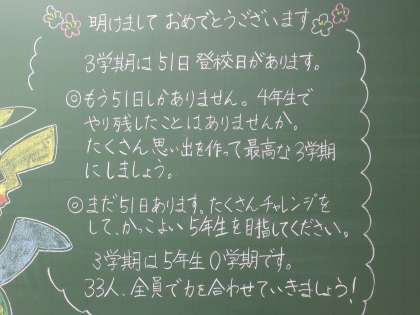 明けまして おめでとうございます
3学期は51日登校日があります。
◎もう51日しかありません。4年生で
やり残したことはありませんか。
たくさん思い出を作って最高な3学期
にしましょう。
◎まだ51日あります。たくさんチャレンジを
して、かっこよい5年生を目指してください。
3学期は5年生0学期です。
33人、全員で力を合わせていきましょう!